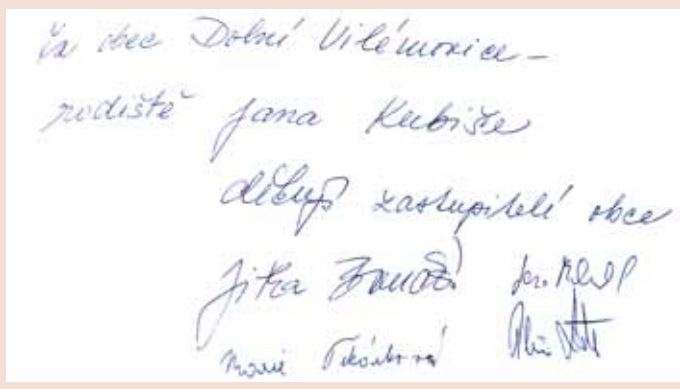 Za obec Dolní Vilémovice –
rodiště Jana Kubiše
děkují zastupitelé obce
Jitka
Marie